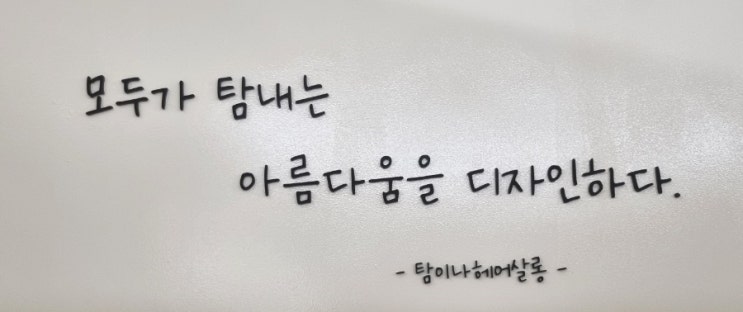 모두가 탐내는
아름다움을 디자인하다.
- 탐이나헤어살롱 -